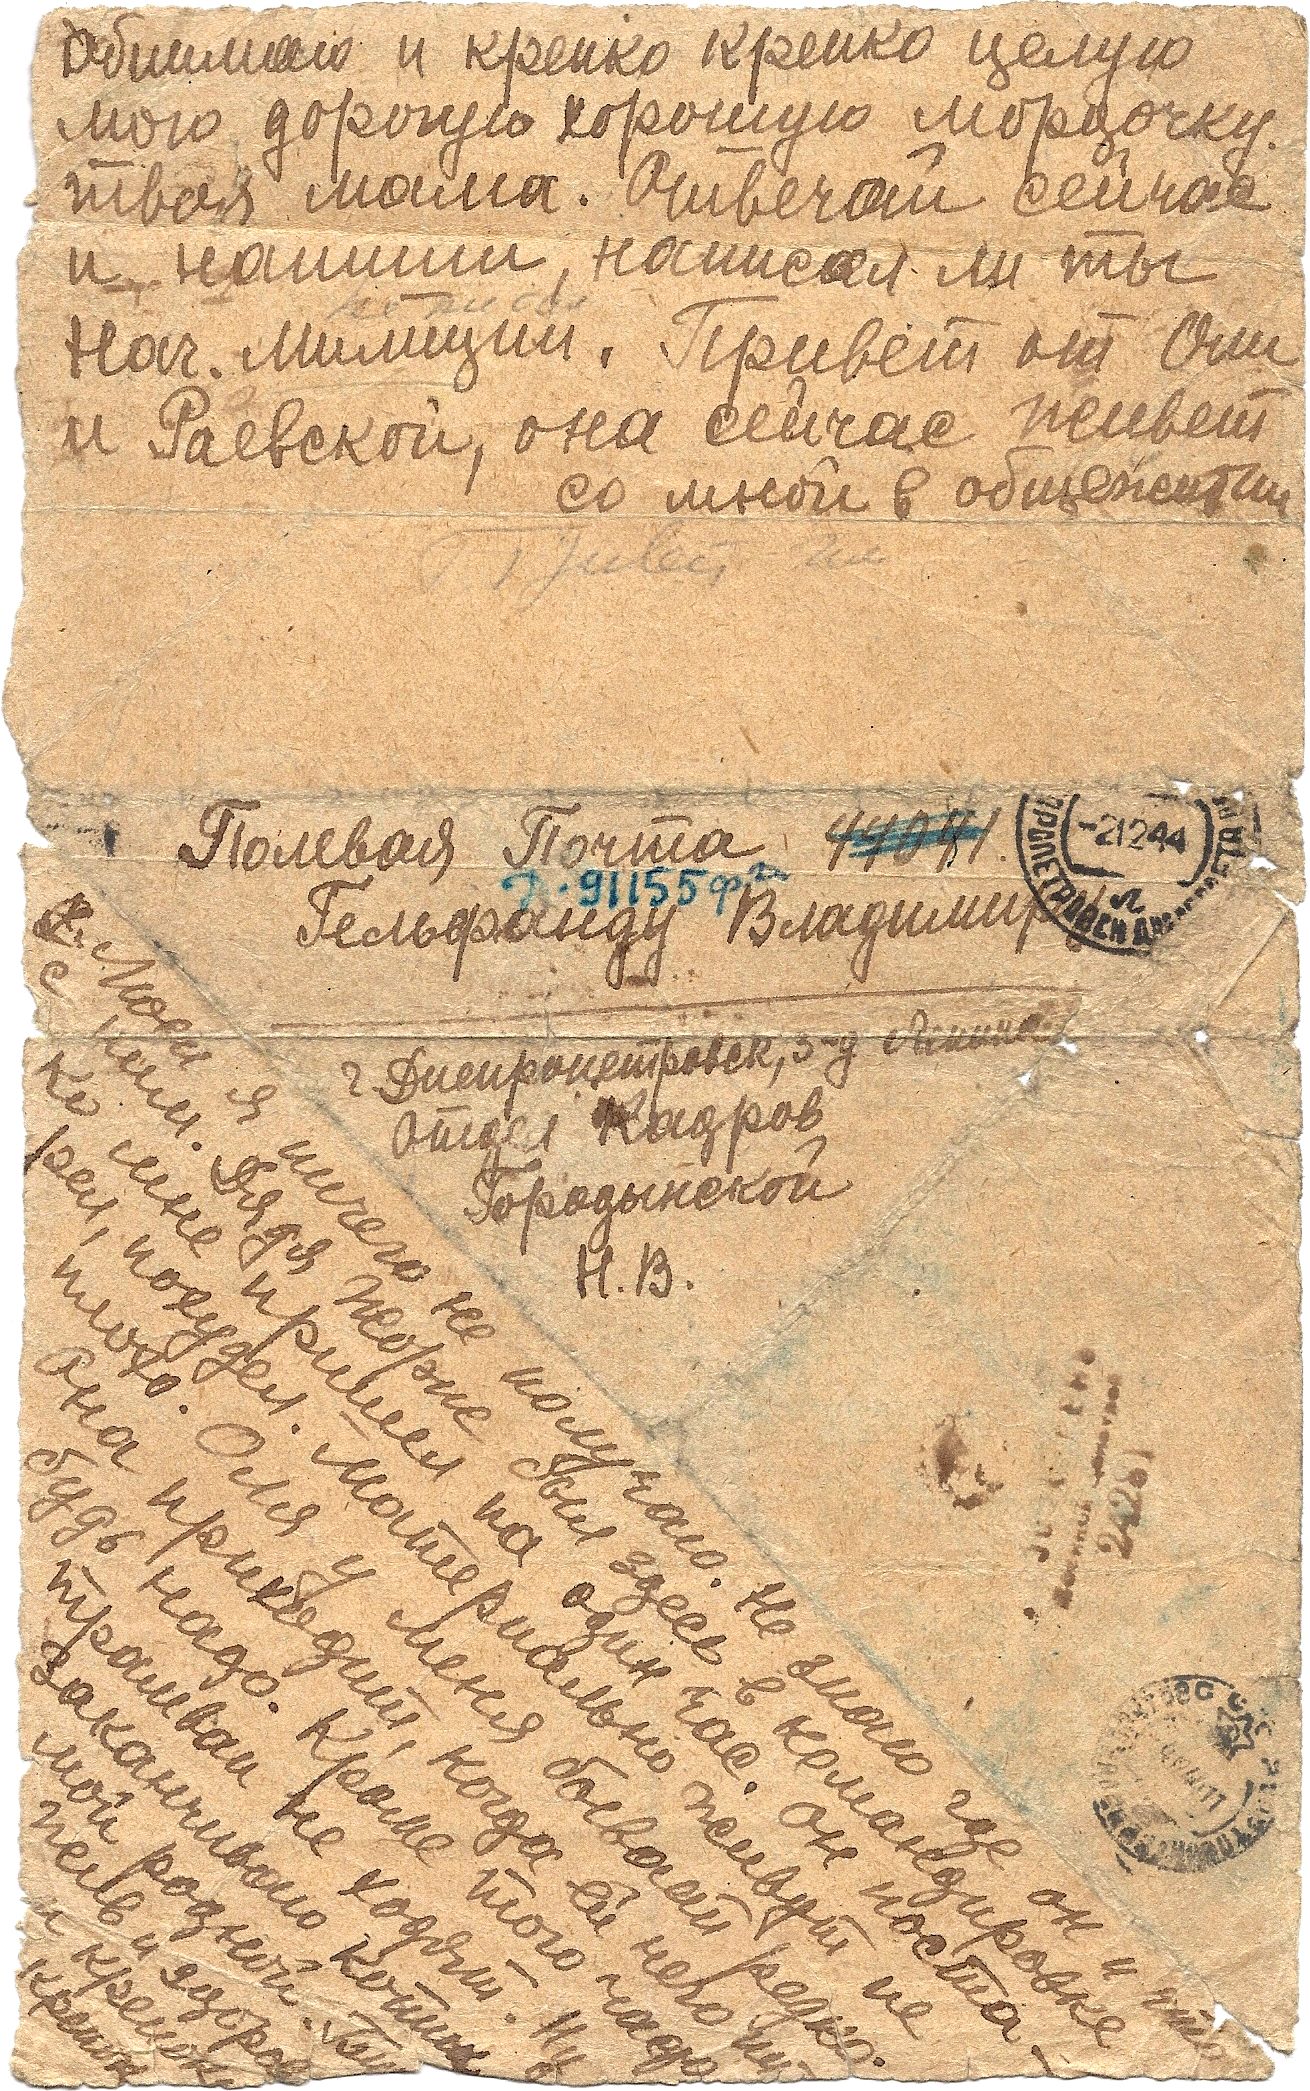 Обнимаю и крепко крепко целую
мою дорогую хорошую мордочку.
твоя мама. Отвечай сейчас
и напиши, написал ли ты
Нач. милиции. Привет от Оли
и Раевской, она сейчас живет
со мной в общежитии
Привет
Полевая Почта 44041.
91155
Гельфанду Владимиру
-21244
г. Днепропетровск, з-д Ленина
Отдел Кадров
Городынской
Н. В.
Моей я ничего не получаю. Не знаю где он и что
с ним. Дядя Жорж был здесь в командировке
ко мне пришел на один час. Он поста
рел, похудел. Материально живут не
плохо. Оля у меня бывает редко.
Она приходит, когда ей чего ниб
будь надо. Кроме того часто
трамваи не ходят. Ну
Заканчиваю
мой родной. Будь
жив и здоров
и крепок
крепко
24281